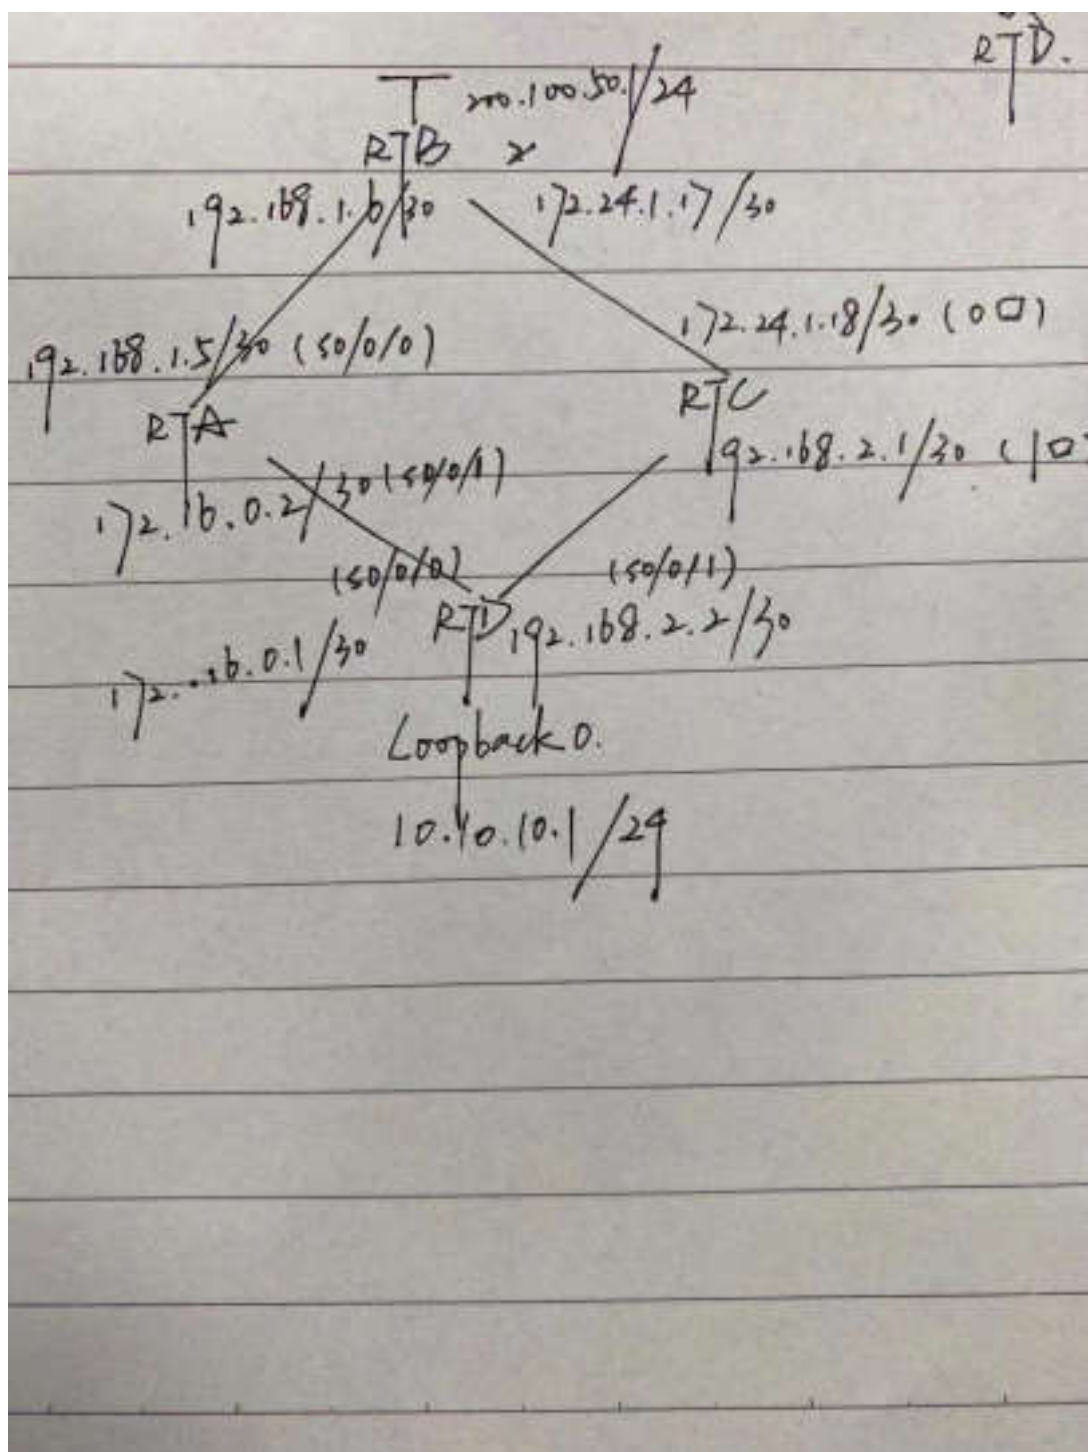 RTD.
200.100.50.1/24
RTB 2
192.168.1.6/30 172.24.1.17/30
172.24.1.18/30 (0口)
192.168.1.5/30 (S0/0/0)
RTA RTC
192.168.2.1/30 (1口
172.16.0.2/30 (S0/0/1)
(S0/0/0) (S0/0/1)
RTD 192.168.2.2/30
172.16.0.1/30
Loopback 0.
10.10.10.1/24